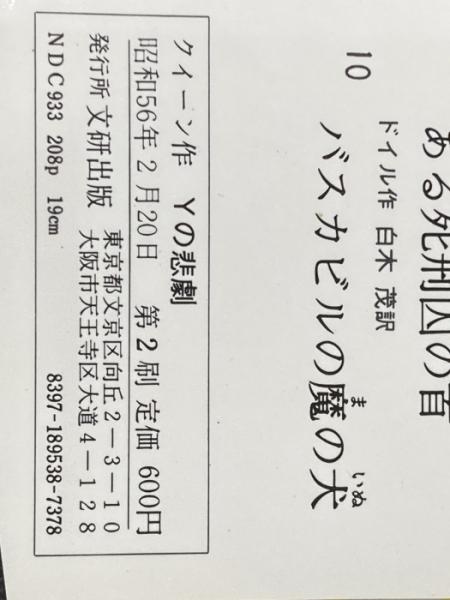 ある死刑囚の首
10
ドイル作 白木 茂訳
バスカビルの魔の犬
ま
いぬ
クイーン作 Yの悲劇
昭和56年2月20日 第2刷 定価 600円
発行所 文研出版
東京都文京区向丘2－3－10
大阪市天王寺区大道4－128
NDC933 208p 19cm 8397-189538-7378